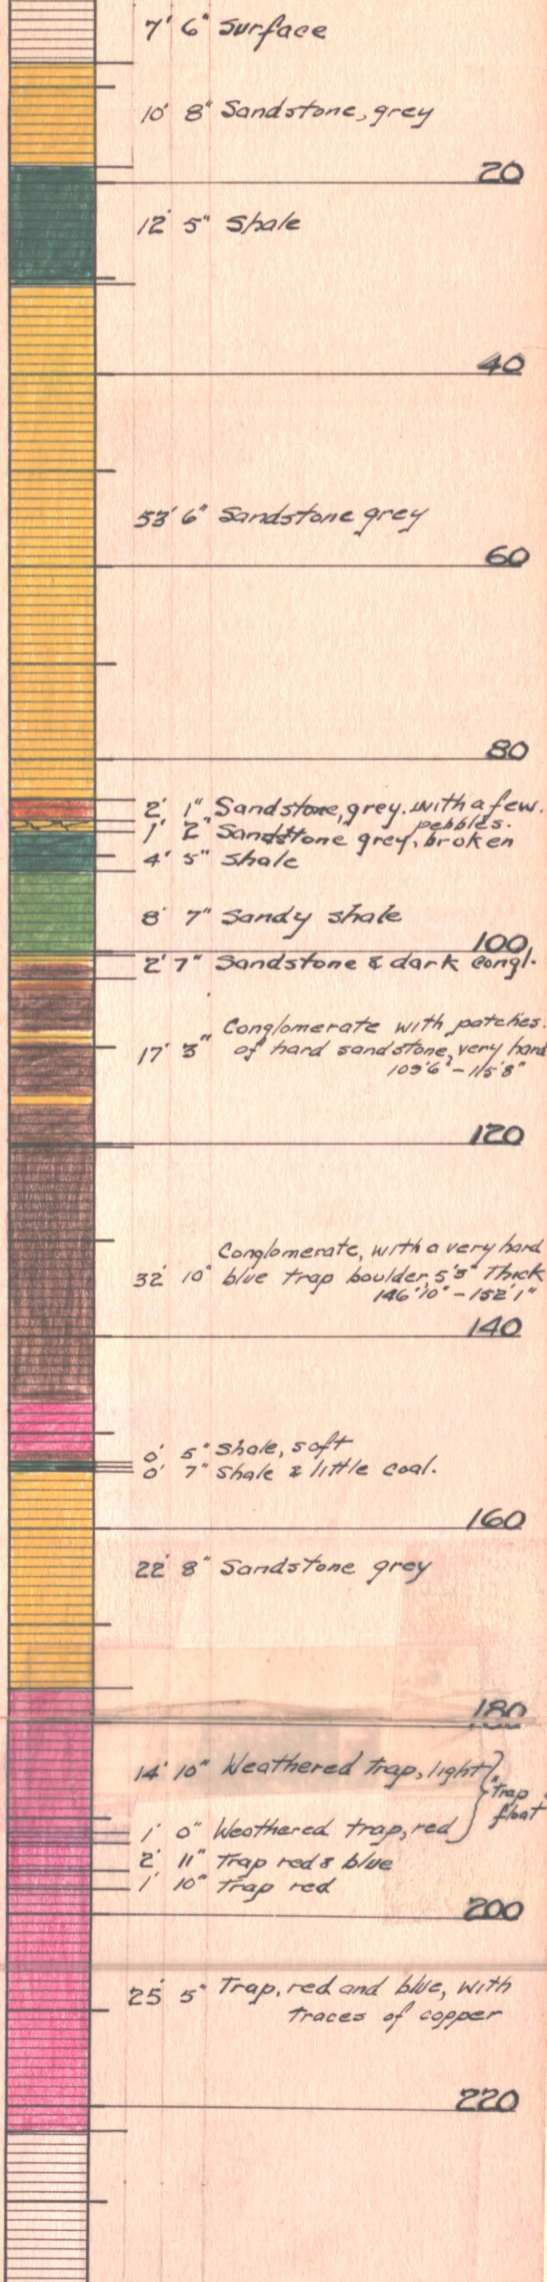 7' 6" Surface
10' 8" Sandstone, grey
20
12' 5" Shale
40
53' 6" Sandstone grey
60
80
2' 1" Sandstone, grey. with a few.
pebbles.
1' 2" Sandstone grey, broken
4' 5" Shale
8' 7" Sandy shale
100
2' 7" Sandstone & dark congl.
Conglomerate with patches.
17' 3" of hard sandstone, very hard
109'6" - 115'8"
120
Conglomerate, with a very hard
32' 10" blue trap boulder, 5'3" Thick
146'10" - 152'1"
140
0' 5" Shale, soft
0' 7" Shale & little coal.
160
22' 8" Sandstone grey
180
14' 10" Weathered trap, light
Trap
float
1' 0" Weathered trap, red
2' 11" Trap red & blue
1' 10" Trap red
200
25' 5" Trap, red and blue, with
traces of copper
220